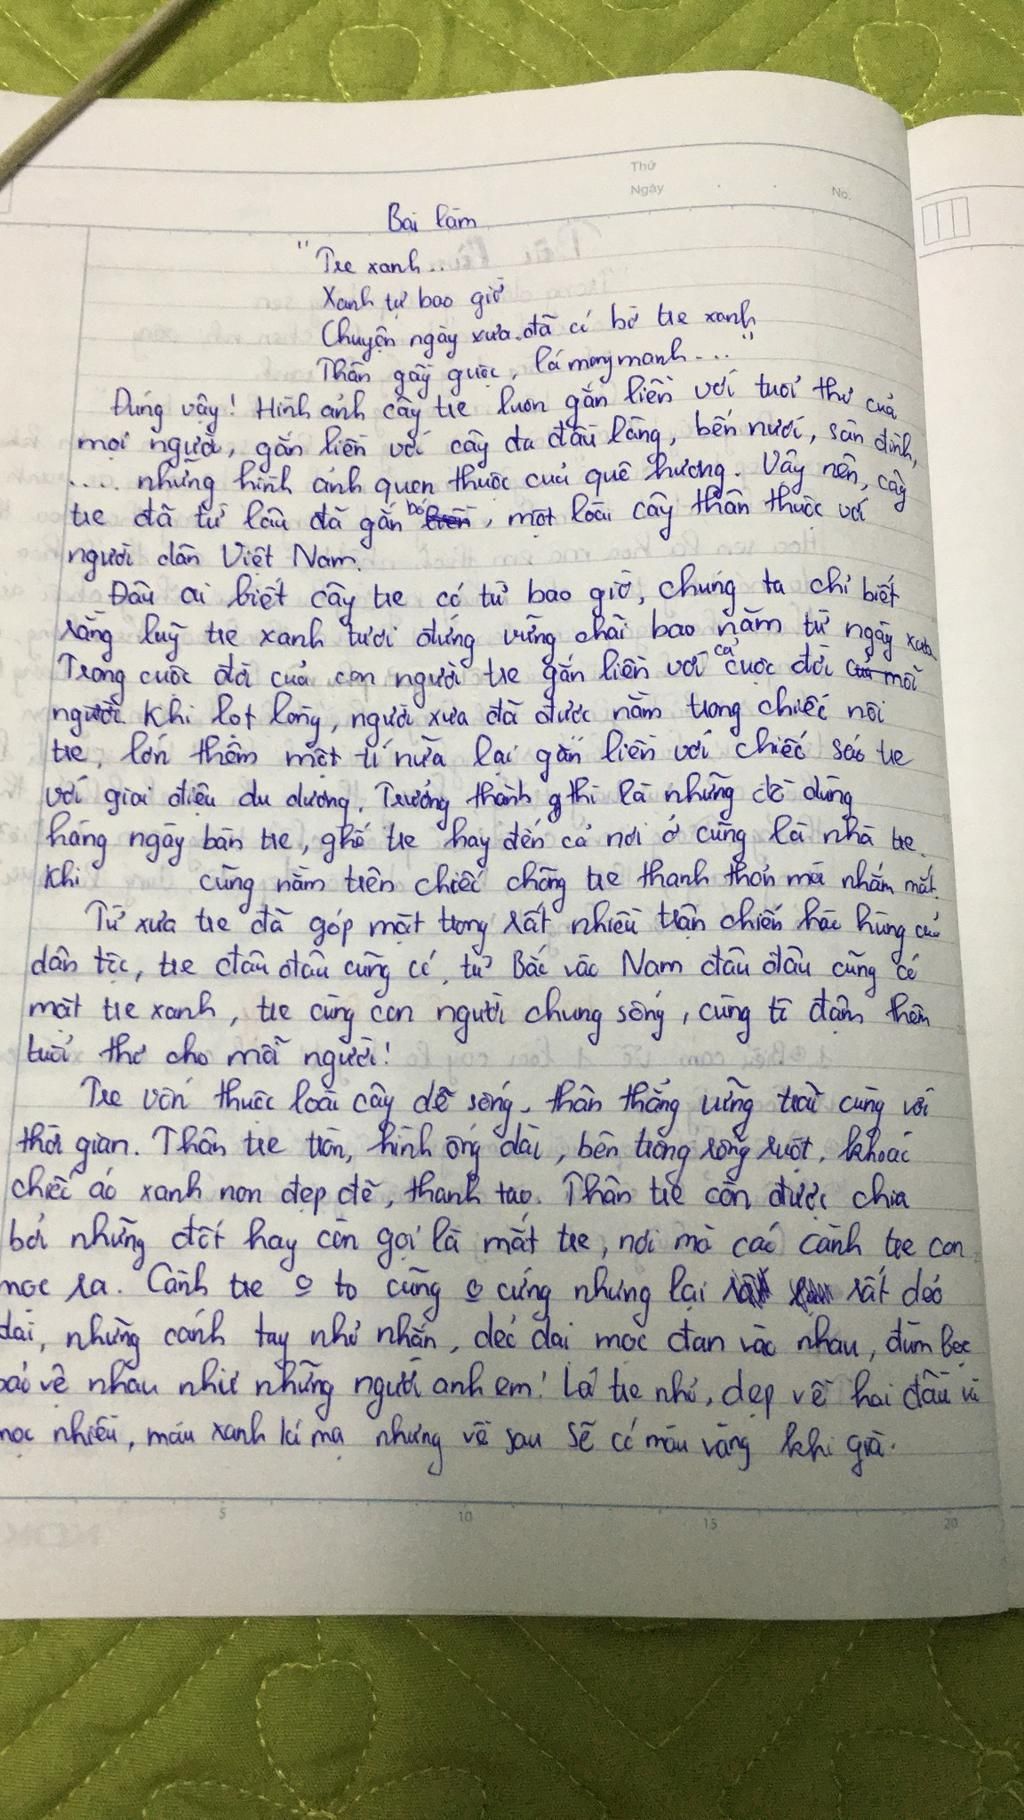 Thứ
Ngày
No.
Bài làm
"Tre xanh..
Xanh tự bao giờ
Chuyện ngày xưa..đã có bờ tre xanh
Thân gầy guộc, lá mong manh...."
Đúng vậy! Hình ảnh cây tre luôn gắn liền với tuổi thơ của
mọi người, gắn liền với cây đa đầu làng, bến nước, sân đình,
.... những hình ảnh quen thuộc của quê hương. Vậy nên, cây
tre đã từ lâu đã gắn bó, một loài cây thân thuộc với
người dân Việt Nam.
Đâu ai biết cây tre có từ bao giờ, chúng ta chỉ biết
rằng luỹ tre xanh tươi đứng vững chãi bao năm từ ngày xưa
Trong cuộc đời của con người tre gắn liền với cả cuộc đời mỗi
người. Khi lọt lòng, người xưa đã được nằm trong chiếc nôi
tre, lớn thêm một tí nữa lại gắn liền với chiếc sáo tre
với giai điệu du dương. Trưởng thành thì là những đồ dùng
hàng ngày bàn tre, ghế tre hay đến cả nơi ở cũng là nhà tre.
Khi cũng nằm trên chiếc chõng tre thanh thản mà nhắm mắt.
Từ xưa tre đã góp mặt trong rất nhiều trận chiến hào hùng của
dân tộc, tre đâu đâu cũng có, từ Bắc vào Nam đâu đâu cũng có
mặt tre xanh, tre cùng con người chung sống, cùng tô đậm thêm
tuổi thơ cho mỗi người!
Tre vốn thuộc loài cây dễ sống, thân thẳng vững trãi cùng với
thời gian. Thân tre tròn, hình ống dài, bên trong rỗng ruột, khoác
chiếc áo xanh non đẹp đẽ, thanh tao. Thân tre còn được chia
bởi những đốt hay còn gọi là mắt tre, nơi mà các cành tre con
mọc ra. Cành tre o to cũng o cứng nhưng lại rất dẻo
dai, những cánh tay nhỏ nhắn, dẻo dai mọc đan vào nhau, đùm bọc
bảo vệ nhau như những người anh em! Lá tre nhỏ, dẹp về hai đầu và
mọc nhiều, màu xanh lá mạ nhưng về sau sẽ có màu vàng khi già.
5 10 15 20